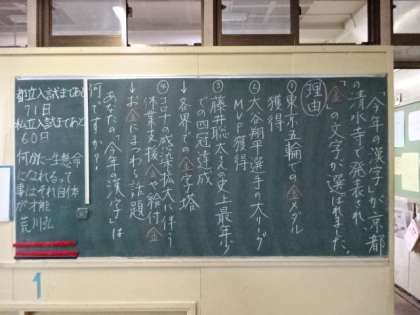 「今年の漢字」が京都
の清水寺で発表され、
「金」の文字が選ばれました。
理由
①東京五輪での金メダル
獲得
②大谷翔平選手の大リーグ
MVP獲得
③藤井聡太の史上最年少
での四冠達成
↓各界での金字塔
④コロナの感染拡大に伴う
休業支援金や給付金
↓お金にまつわる話題
あなたの「今年の漢字」は
何ですか？
都立入試まであと
71日
私立入試まであと
60日
何故一生懸命
になれるって
事はそれ自体
が才能
荒川弘
1